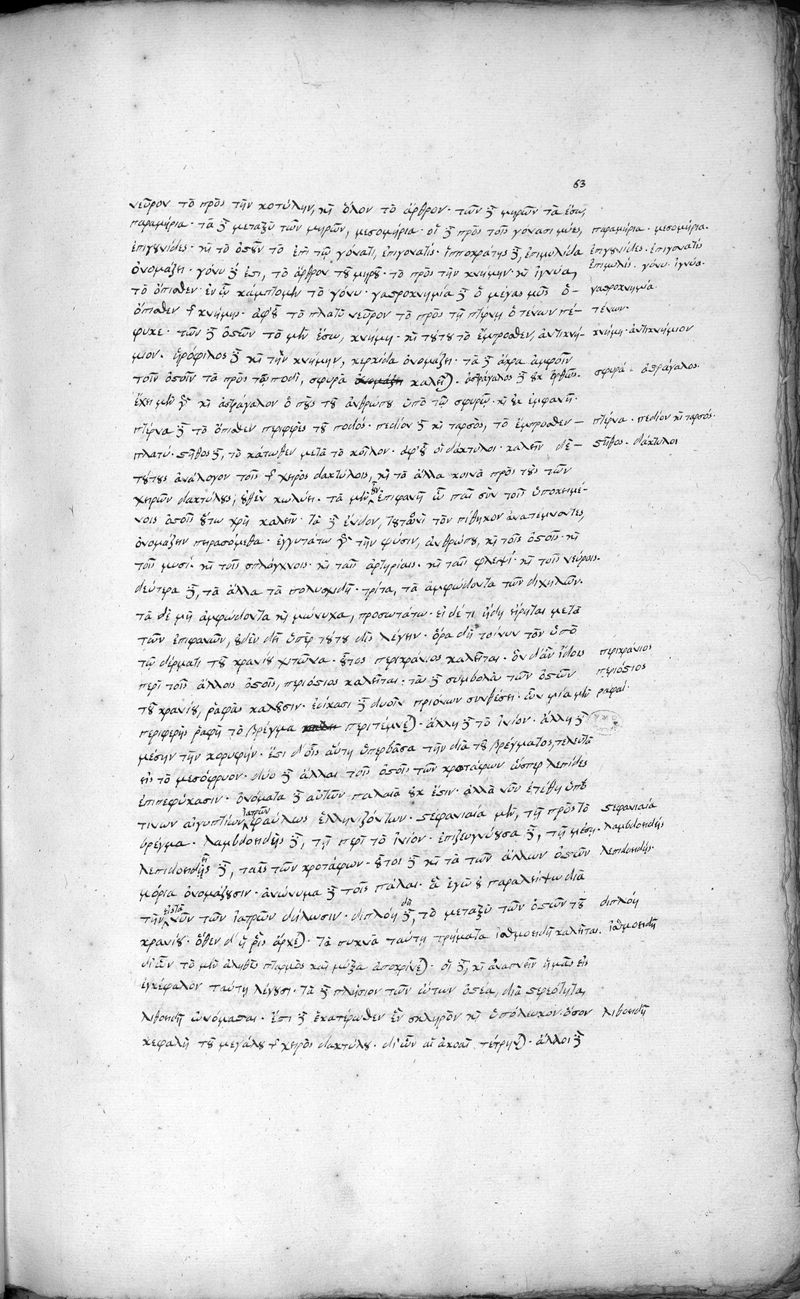 63
νεῦρον τὸ πρὸς τὴν κοτύλην, καὶ ὅλον τὸ ἄρθρον· τῶν δὲ μηρῶν τὰ ἔσω,
παραμήρια· τὰ δὲ μεταξὺ τῶν μηρῶν, μεσομήρια· οἱ δὲ πρὸς τοῖς γόνασι μύες, παραμήρια· μεσομήρια·
ἐπιγουνίδες· καὶ τὸ ὀστοῦν τὸ ἐπὶ τῷ γόνατι, ἐπιγονατίς· ἱπποκράτης δὲ, ἐπιμυλίδα ἐπιγουνίδες· ἐπιγονατίς
ὀνομάζει· γόνυ δέ ἐστι, τὸ ἄρθρον τοῦ μηροῦ· τὸ πρὸς τὴν κνήμην· καὶ ἰγνύα, ἐπιμυλίς· γόνυ· ἰγνύα·
τὸ ὄπισθεν· ἐν ᾧ κάμπτομεν τὸ γόνυ· γαστροκνημία δὲ ὁ μέγας μῦς ὁ γαστροκνημία
ὄπισθεν τῆς κνήμης· ἀφ' οὗ τὸ πλατὺ νεῦρον τὸ πρὸς τῇ πτέρνῃ ὁ τένων πέ- τένων·
φυκε· τῶν δὲ ὀστῶν τὸ μὲν ἔσω, κνήμη· καὶ τούτου τὸ ἔμπροσθεν, ἀντικνή- κνήμη· ἀντικνήμιον
μιον· ἡρόφιλος δὲ καὶ τὴν κνήμην, κερκίδα ὀνομάζει· τὰ δὲ ἄκρα ἀμφοῖν
τοῖν ὀστοῖν τὰ πρὸς τῷ ποδί, σφυρὰ καλεῖται· ἀστράγαλος δὲ οὐκ ὀρθῶς· σφυρά· ἀστράγαλος·
ἔχει μὲν γὰρ καὶ ἀστράγαλον ὁ ποῦς τοῦ ἀνθρώπου ὑπὸ τῷ σφυρῷ· καὶ οὐκ ἐμφανῆ·
πτέρνα δὲ τὸ ὄπισθεν περιφερὲς τοῦ ποδός· πεδίον δὲ καὶ ταρσὸς, τὸ ἔμπροσθεν πτέρνα· πεδίον καὶ ταρσός·
πλατύ· στῆθος δὲ, τὸ κάτωθεν μετὰ τὸ κοῖλον· ἀφ' οὗ οἱ δάκτυλοι· καλεῖν δὲ στῆθος· δάκτυλοι
τούτους ἀνάλογον τοῖς τῆς χειρὸς δακτύλοις, καὶ τὰ ἄλλα κοινὰ πρὸς τοὺς τῶν
χειρῶν δακτύλους, οὐδὲν κωλύει· τὰ μὲν οὖν ἐπιφανῆ ὦ παῖ σὺν τοῖς ὑποκειμέ-
νοις ὀστοῖς οὕτω χρὴ καλεῖν· τὰ δὲ ἔνδον, τουτονὶ τὸν πίθηκον ἀνατέμνοντες,
ὀνομάζειν πειρασόμεθα· ἐγγυτάτω γὰρ τὴν φύσιν, ἀνθρώπου, καὶ τοῖς ὀστοῖς· καὶ
τοῖς μυσί· καὶ τοῖς σπλάγχνοις· καὶ ταῖς ἀρτηρίαις· καὶ ταῖς φλεψί· καὶ τοῖς νεύροις·
δεύτερα δὲ, τὰ ἄλλα τὰ πολυσχιδῆ· τρίτα, τὰ ἀμφώδοντα τῶν διχήλων·
τὰ δὲ μὴ ἀμφώδοντα καὶ μώνυχα, προσωτάτω· εἰ δέ τι ἤδη εἴρηται μετὰ
τῶν ἐπιφανῶν, οὐδὲν δεῖ ὑπὲρ τούτου δὶς λέγειν· ὅρα δὴ τοίνυν τὸν ὑπὸ
τῷ δέρματι τοῦ κρανίου χιτῶνα· οὗτος περικράνιος καλεῖται· ὃν δ' ἂν ἴδοις περικράνιος
περὶ τοῖς ἄλλοις ὀστοῖς, περιόστιος καλεῖται· τὰ δὲ συμβολὰ τῶν ὀστῶν περιόστιος
τοῦ κρανίου, ῥαφὰς καλοῦσιν· ἐοίκασι δὲ δυοῖν πριόνων συνθέσει· ὧν μία μὲν ῥαφαί·
περιφερὴς ῥαφὴ τὸ βρέγμα περιτέμνεται· ἄλλη δὲ τὸ ἰνίον· ἄλλη δὲ
μέσην τὴν κορυφήν· ἔστι δ' οἷς αὕτη ὑπερβᾶσα τὴν διὰ τοῦ βρέγματος, τελευτᾷ
εἰς τὸ μεσόφρυον· δύο δὲ ἄλλαι τοῖς ὀστοῖς τῶν κροτάφων ὥσπερ λεπίδες
ἐπιπεφύκασιν· ὀνόματα δὲ αὐτῶν παλαιὰ οὐκ ἔστιν· ἀλλὰ νῦν ἐτέθη ὑπό
τινων αἰγυπτίων ἰατρῶν φαύλως ἑλληνιζόντων· στεφανιαία μὲν, τῇ πρὸς τὸ στεφανιαία
βρέγμα· λαμβδοειδὴς δὲ, τῇ περὶ τὸ ἰνίον· ἐπιζευγνύουσα δὲ, τῇ μέσῃ· λαμβδοειδής
λεπιδοειδεῖς δὲ, ταῖς τῶν κροτάφων· οὗτοι δὲ καὶ τὰ τῶν ἄλλων ὀστῶν λεπιδοειδής·
μόρια ὀνομάζουσιν· ἀνώνυμα δὲ τοῖς πάλαι· ἃ ἐγὼ οὐ παραλείψω διὰ
τὴν εἰς τὰ νῦν τῶν ἰατρῶν δήλωσιν· διπλόη δὲ, τὸ μεταξὺ τῶν ὀστῶν τοῦ διπλόη
κρανίου· ὅθεν δ' ἡ ῥὶς ἄρχεται· τὰ πυκνὰ ταύτῃ τρήματα ἰσθμοειδῆ καλεῖται· ἰσθμοειδῆ
δι' ὧν τὸ μὲν ἀληθὲς πταρμὸς καὶ μύξα ἀποκρίνεται· οἱ δὲ, καὶ ἀναπνεῖν ἡμᾶς εἰς
ἐγκέφαλον ταύτῃ λέγουσι· τὰ δὲ πλησίον τῶν ὤτων ὀστέα, διὰ στερεότητα,
λιθοειδῆ ὠνόμασται· ἔστι δὲ ἑκατέρωθεν ἓν σκληρὸν καὶ ὑπόλευκον· ὅσον λιθοειδῆ
κεφαλὴ τοῦ μεγάλου τῆς χειρὸς δακτύλου· δι' ὧν αἱ ἀκοαὶ τέτρηνται· ἄλλοι δὲ